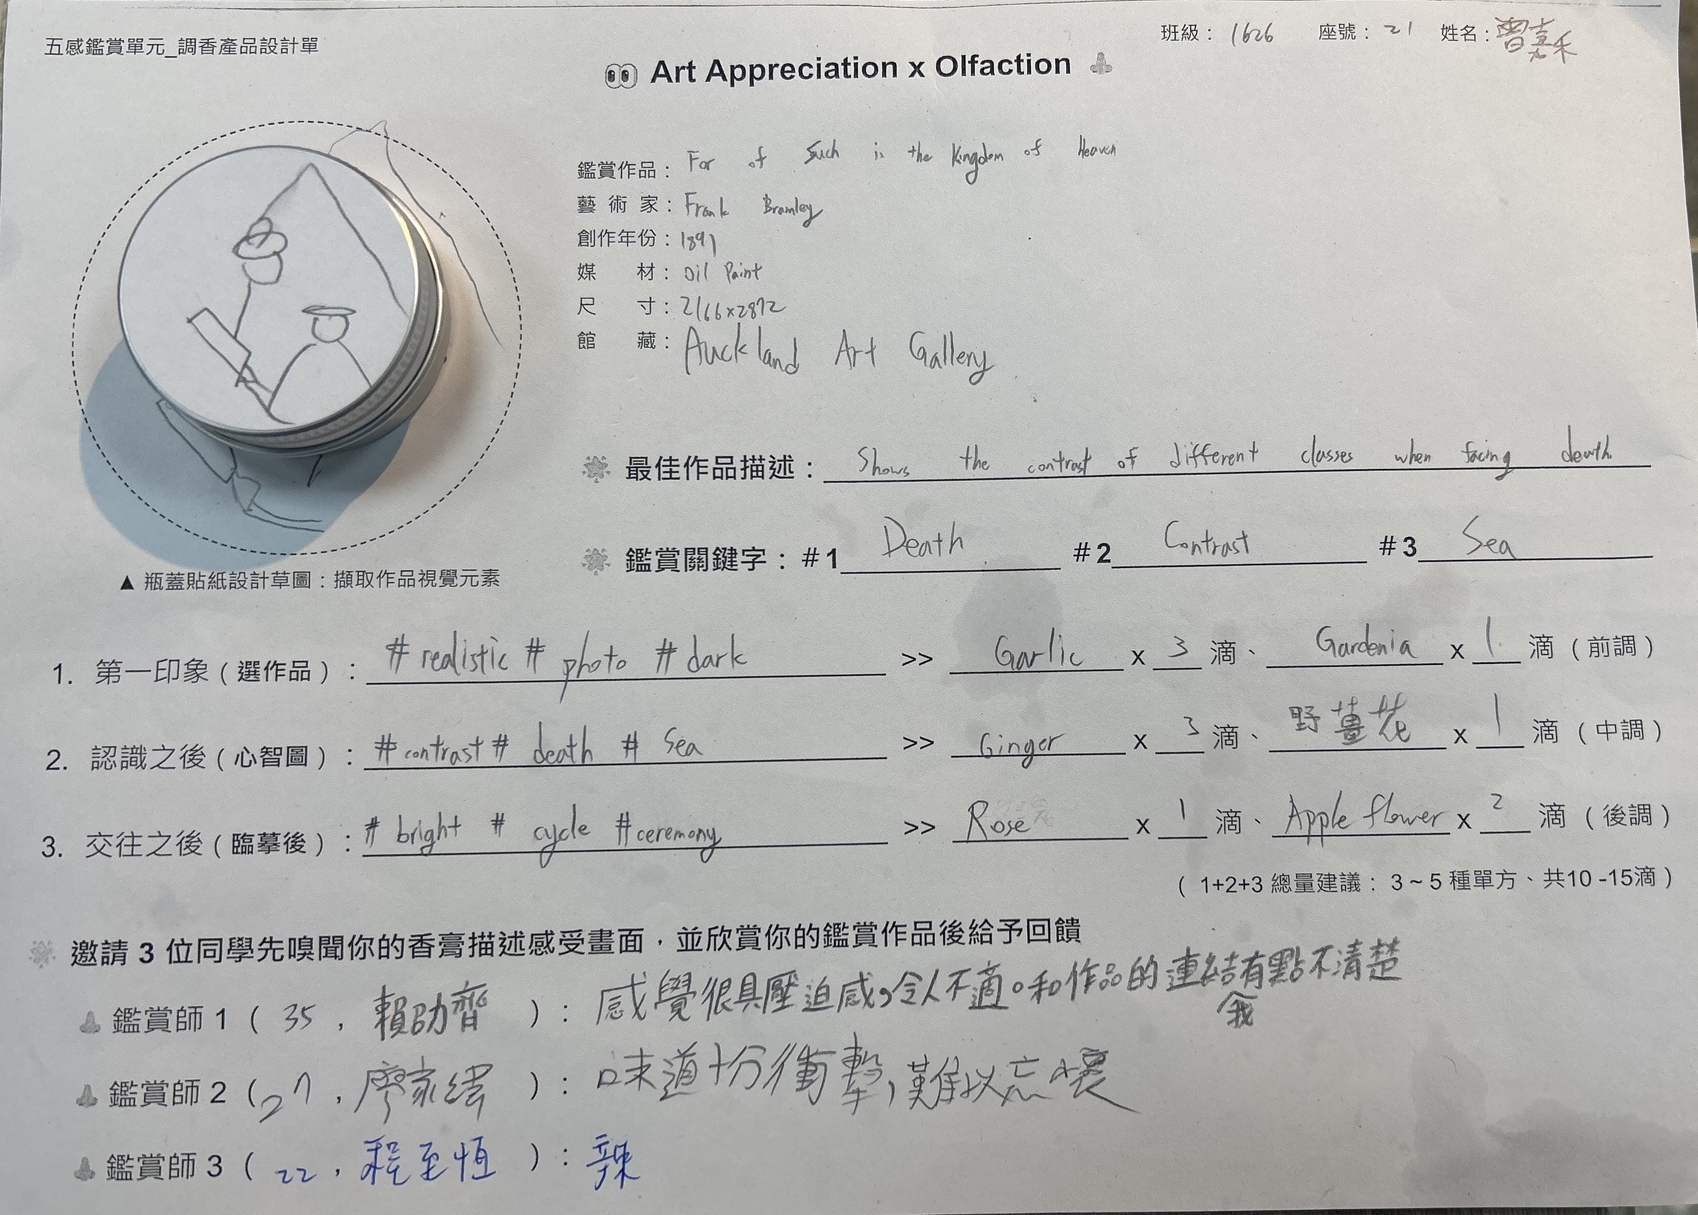 五感鑑賞單元_調香產品設計單
班級： 1626 座號： 21 姓名： 曾嘉禾
Art Appreciation x Olfaction
鑑賞作品： For of Such is the Kingdom of Heaven
藝術家： Frank Bramley
創作年份： 1891
媒材： Oil Paint
尺寸： 2166x2872
館藏： Auckland Art Gallery
最佳作品描述： Shows the contrast of different classes when facing death
鑑賞關鍵字： #1 Death #2 Contrast #3 Sea
▲ 瓶蓋貼紙設計草圖：擷取作品視覺元素
1. 第一印象（選作品）： # realistic # photo # dark >> Garlic x 3 滴、 Gardenia x 1 滴（前調）
2. 認識之後（心智圖）： # contrast # death # Sea >> Ginger x 3 滴、 野薑花 x 1 滴（中調）
3. 交往之後（臨摹後）： # bright # cycle # ceremony >> Rose x 1 滴、 Apple flower x 2 滴（後調）
（ 1+2+3 總量建議： 3 ~ 5 種單方、共10 -15滴 ）
邀請 3 位同學先嗅聞你的香膏描述感受畫面，並欣賞你的鑑賞作品後給予回饋
鑑賞師 1（ 35 , 賴劭齊 ）： 感覺很具壓迫感，令人不適。和作品的連結有點不清楚
鑑賞師 2（ 27 , 廖家緯 ）： 味道十分衝擊，難以忘懷
鑑賞師 3（ 22 , 程至恆 ）： 辣